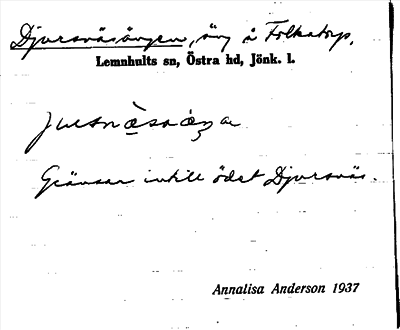 Djursnäsängen, äng å Folkatorp,
Lemnhults sn, Östra hd, Jönk. l.
Gränsar intill ödet Djursnäs.
Annalisa Anderson 1937